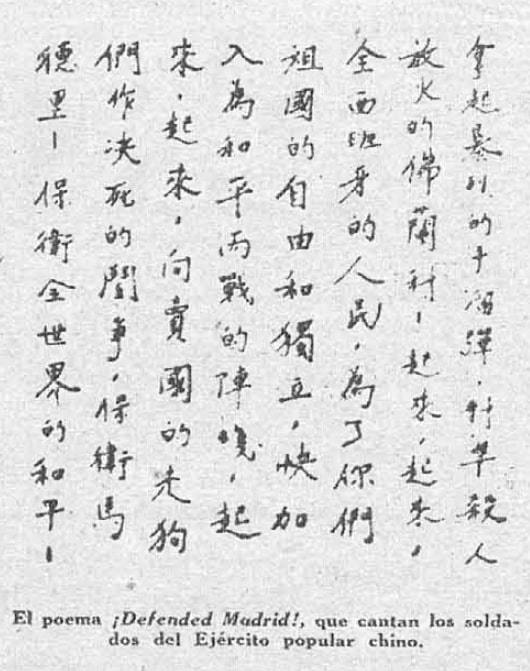 拿起暴烈的手溜彈，對準殺人
放火的佛蘭科！起來，起來，
全西班牙的人民，為了你們
祖國的自由和獨立，快加
入為和平而戰的陣綫，起
來，起來，向賣國的走狗
們作决死的鬪爭，保衛馬
德里！保衛全世界的和平！
El poema ¡Defended Madrid!, que cantan los solda-
dos del Ejército popular chino.